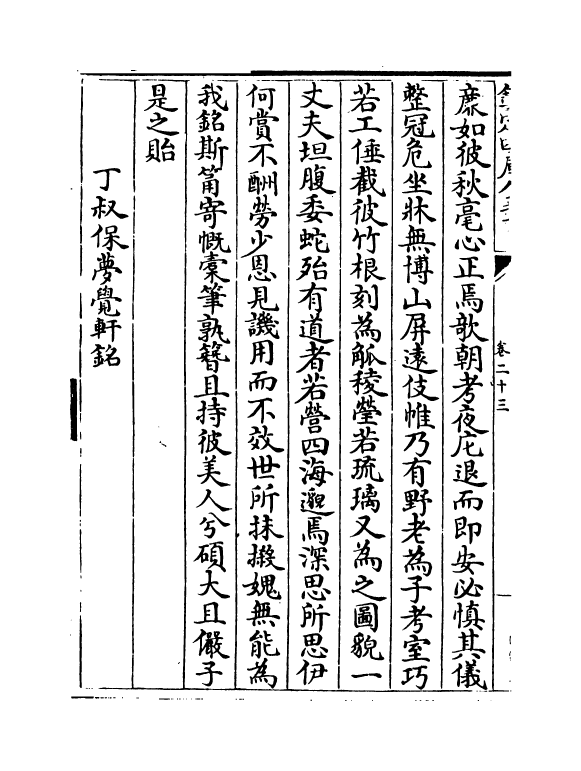 欽定四庫全書
卷二十三
麋如彼秋毫心正焉欹朝考夜庀退而即安必慎其儀
整冠危坐牀無博山屏遠伎帷乃有野老為子考室巧
若工倕截彼竹根刻為觚稜瑩若琉璃又為之圖貌一
丈夫坦腹委蛇殆有道者若營四海邈焉深思所思伊
何賞不酬勞少恩見譏用而不效世所抹摋媿無能為
我銘斯筩寄慨橐筆孰簪且持彼美人兮碩大且儼子
是之貽
丁叔保夢覺軒銘